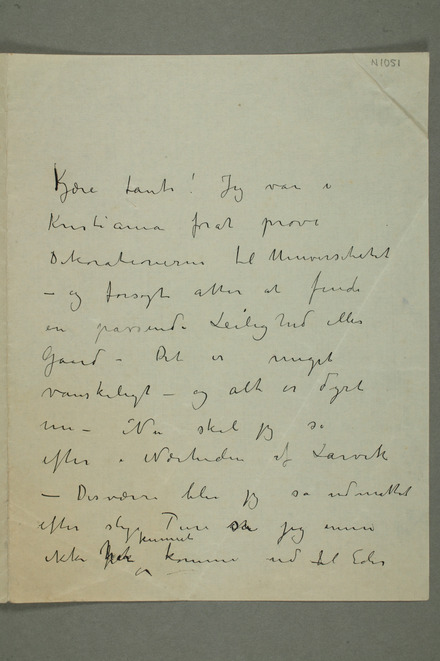 N1051
Kjære tante! Jeg var i
Kristiania forat prøve
Dekorationerne til Universitetet
– og forsøgte atter at finde
en passende Leilighed eller
Gaard – Det er meget
vanskeligt – og alt er dyrt
nu – Nu skal jeg se
efter i Nærheden af Larvik
– Desværre blev jeg så udmattet
efter slige Ture jeg
kunnet
ikke komme ud til Eder